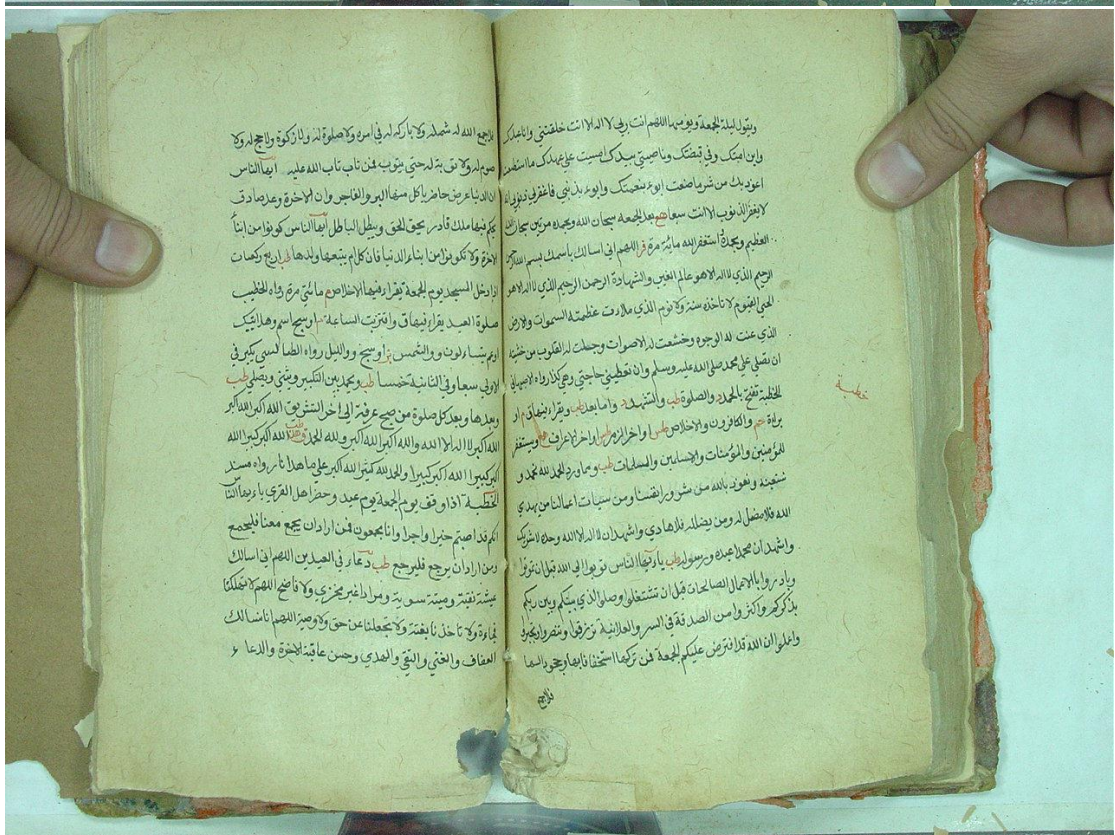 ويقول ليلة الجمعة ويومها اللهم انت ربي لا اله الا انت خلقتني وانا عبدك
وابن امتك وفي قبضتك وناصيتي بيدك امسيت على عهدك ما استطعت
اعوذ بك من شر ما صنعت ابوء بنعمتك وابوء بذنبي فاغفر لي ذنوبي انه
لا يغفر الذنوب الا انت سبعا بعد الجمعه سبحان الله وبحمده مرتين سبحان الله
العظيم وبحمده استغفر الله مائة مرة اللهم اني اسالك باسمك بسم الله الرحمن
الرحيم الذي لا اله الا هو عالم الغيب والشهادة الرحمن الرحيم الذي لا اله الا هو
الحي القيوم لا تاخذه سنة ولا نوم الذي ملات عظمته السموات والارض
الذي عنت له الوجوه وخشعت له الاصوات ووجلت له القلوب من خشيته
ان تصلي على محمد صلى الله عليه وسلم وان تعطيني حاجتي وهي كذا رواه الاصبهاني
خطبة
الخطبة تفتح بالحمد د والصلوة طب والتشهد د واما بعد طب ويقراء فيها ق م او
براءة والكافرون والاخلاص طس واخر الزمر طس واخر الاعراف ويستغفر
للمؤمنين والمؤمنات والمسلمين والمسلمات طب ومما ورد الحمد لله نحمد و
نستعينه ونعوذ بالله من شرور انفسنا ومن سيئات اعمالنا من يهدي
الله فلا مضل له ومن يضلله فلا هادي واشهد ان لا اله الا الله وحده لا شريك
واشهد ان محمدا عبده ورسوله طب ياءيها الناس توبوا الى الله قبل ان تموتوا
وبادروا بالاعمال الصالحات قبل ان تشتغلوا وصلوا الذي بينكم وبين ربكم
بذكركم واكثروا من الصدقة في السر والعلانية ترزقوا وتنصروا وتجبروا
واعلموا ان الله قد افترض عليكم الجمعة فمن تركها استخفافا بها وجحودا لها
فلا جمع
فلا جمع الله له شمله ولا بارك له في امره ولا صلوة له ولا زكوة ولا حج له ولا
صوم له ولا توبة له حتى يتوب فمن تاب تاب الله عليه ايها الناس
ان الدنيا عرض حاضر ياكل منها البر والفاجر وان الاخرة وعد صادق
يحكم فيها ملك قادر يحق الحق ويبطل الباطل ايها الناس كونوا من ابناء
الاخرة ولا تكونوا من ابناء الدنيا فان كل ام يتبعها ولدها طب اربع ركعات
اذا دخل المسجد يوم الجمعة يقراء فيها الاخلاص م مائتي مرة رواه الخطيب
صلوة العيد يقراء فيها ق واقتربت الساعة م او سبح اسم وهل اتيك
او عم يتساءلون والشمس او سبح والليل رواه الطيالسي يكبر في
الاولى سبعا وفي الثانية خمسا طب ويحمد بين التكبير ويثني ويصلي طب
وبعدها وبعد كل صلوة من صبح عرفة الى اخر التشريق الله اكبر الله اكبر
الله اكبر لا اله الا الله والله اكبر الله اكبر ولله الحمد طب الله اكبر كبيرا الله
اكبر كبيرا الله اكبر كبيرا والحمد لله كثيرا الله اكبر على ما هدانا رواه مسدد
الخطبة اذا وقف يوم الجمعة يوم عيد وحضر اهل القرى ياءيها الناس
انكم قد اصبتم خيرا واجرا وانا مجمعون فمن اراد ان يجمع معنا فليجمع
ومن اراد ان يرجع فليرجع طب دعاء في العيدين اللهم اني اسالك
عيشة نقية وميتة سوية ومردا غير مخزي ولا فاضح اللهم لا تهلكنا
فجاءة ولا تاخذنا بغتة ولا تعجلنا عن حق ولا وصية اللهم انا نسالك
العفاف والغنى والتقى والهدى وحسن عاقبة الاخرة والدعا ء